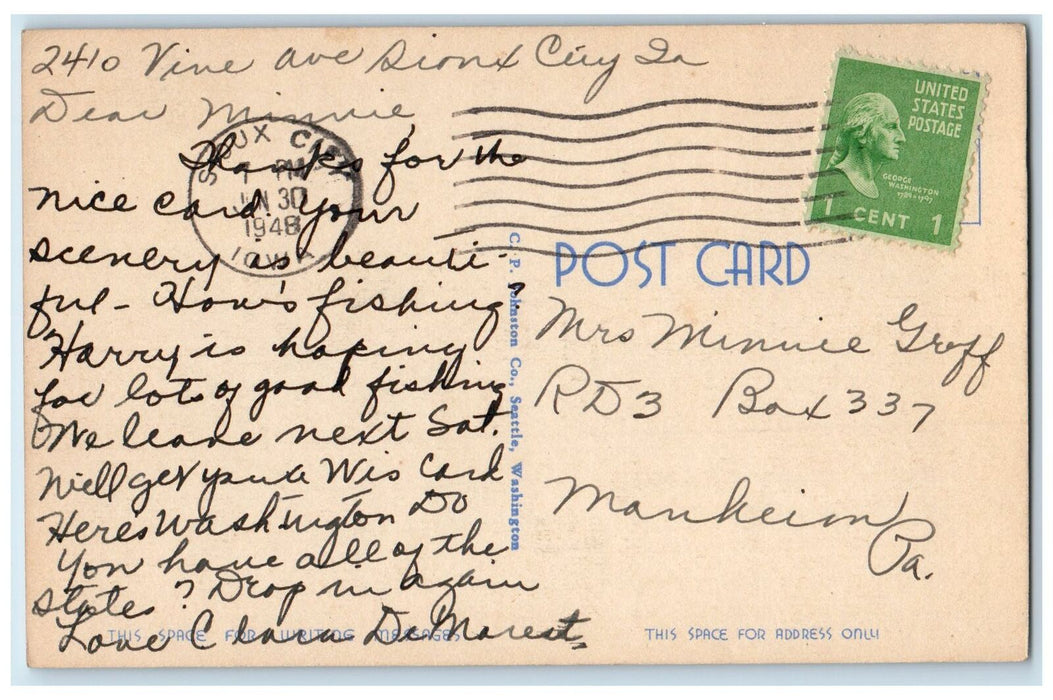 2410 Vine Ave Sioux City Ia
Dear Minnie,
Thanks for the
nice card. Your
scenery is beauti-
ful - How's fishing?
Harry is hoping
for lots of good fishing
We leave next Sat.
Will get you a Wis Card
Heres Washington Do
You have all of the
states? Drop in again
Love Clara DeMarest.
THIS SPACE FOR WRITING MESSAGES
SIOUX CITY
PM
JUN 30
1948
IOWA
C. P. Johnston Co., Seattle, Washington
UNITED
STATES
POSTAGE
GEORGE
WASHINGTON
1789-1797
1 CENT 1
POST CARD
Mrs Minnie Groff
RD3 Box 337
Manheim
Pa.
THIS SPACE FOR ADDRESS ONLY